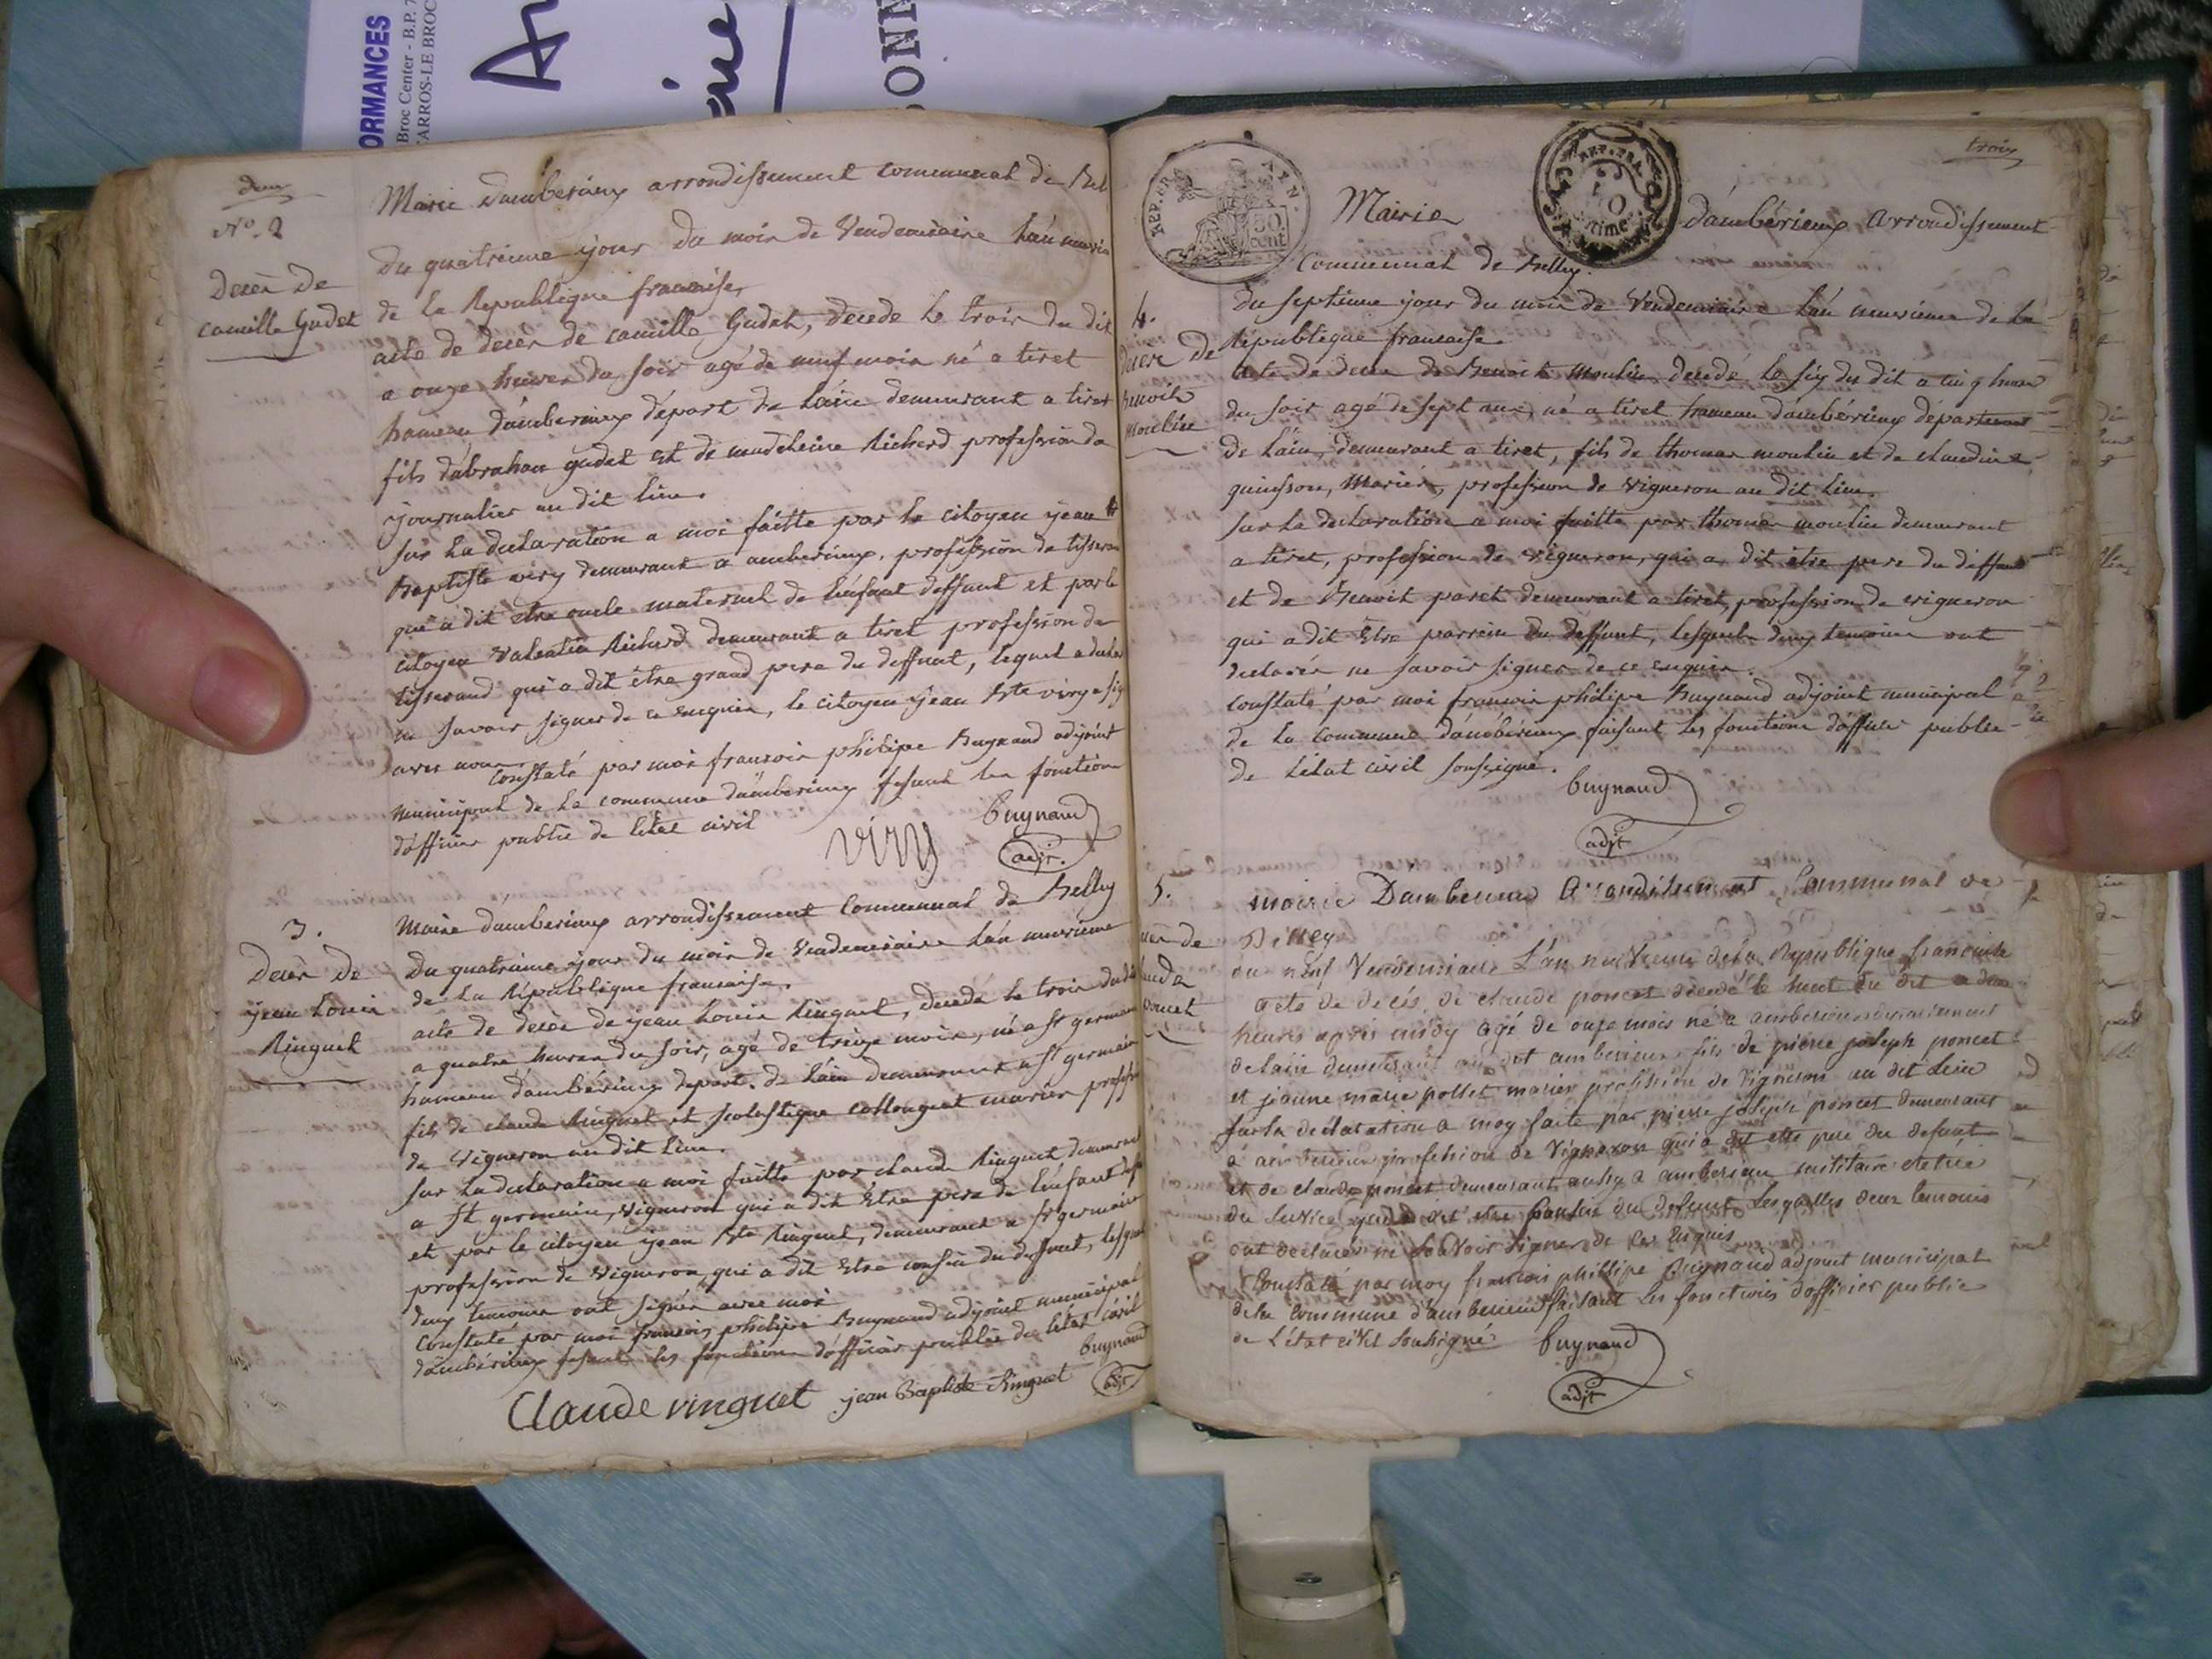 ORMANCES
Broc Center - B.P. 7
ARROS-LE BROC
deux
N°. 2
Decès De
camille Gudet
Mairie dambérieux arrondissement communal de Bel
du quatrieme jour du mois de Vendemiaire l'an neuvie
de la Republique francaise,
acte de decès de camille Gudet, decede le trois du dit
a onze heures du soir agé de neuf mois né a tiret
hameau dambérieux départ de l'ain demeurant a tiret
fils d'abraham gudet et de madeleine Richerd profession de
journalier au dit lieu.
sur la declaration a moi faitte par le citoyen jean
Baptiste viry demeurant a amberieux. profession de tisseran
qui a dit etre oncle maternel de l'enfant deffunt et par le
citoyen Valentin Richerd demeurant a tiret profession de
tisserand qui a dit être grand pere du deffunt, lequel a declar
ne savoir signer de ce enquis, le citoyen jean Bte viry a sig
avec nous.
Constaté par moi francois philipe Buynand adjoint
municipal de la commune dambérieux fesant les fonction
d'officier public de l'état civil
viry
buynand
adjt.
3.
Decès De
jean Louis
Ringuet
Mairie dambérieux arrondissement Communal de Belley
Du quatrieme jour du mois de Vendemiaire l'an neuvieme
de la République francaise.
acte de decès de jean Louis Ringuet, decedé le trois du dit
a quatre heures du soir, agé de treize mois, né a St germain
hameau d'ambérieux depart. de l'ain demeurant a St germain
fils de claude Ringuet et scolastique collonguet mariés profess
de vigneron au dit lieu.
sur la declaration a moi faitte par claude Ringuet demeurant
a St germain, vigneron qui a dit être pere de l'enfant def
et par le citoyen jean Bte Ringuet, demeurant a St germain
profession de vigneron, qui a dit être cousin du deffunt, lesque
deux temoins ont signés avec moi
Constaté par moi francois philipe Buynand adjoint municipal
dambérieux fesant les fonctions d'officier public de l'état civil
buynand
Claude ringuet
jean Baptiste Ringuet
adjt
troix
REP. FRA.
50
cent
Mairie
dambérieux arrondissement
Communal de Belley.
4.
decès De
Benoit
Moulin
du septieme jour du mois de Vendemiaire l'an neuvieme de la
République francaise.
acte de decès de Benoit Moulin, decedé le six du dit a cinq heures
du soir agé de sept ans, né a tiret hameau d'ambérieux département
de l'ain, demeurant a tiret, fils de thomas moulin et de claudine
quinsson, Mariés, profession de vigneron au dit lieu.
sur la declaration a moi faitte par thomas moulin demeurant
a tiret, profession de vigneron, qui a dit etre pere du deffunt
et de Benoit paret demeurant a tiret, profession de vigneron
qui a dit Etre parrein du deffunt, lesquels deux temoins ont
declarés ne savoir signer de ce enquis.
constaté par moi francois philipe Buynand adjoint municipal
de la commune d'ambérieux faisant les fonctions d'officier public
de l'état civil soussigné.
buynand
adjt
5.
mairie Dambérieux arrondissement Communal de
Belley
du neuf Vendemiaire L'an neuvieme de la Republique francaise
acte de décès de claude poncet décedé le huit du dit a deux
heures apres midy agé de onze mois né a amberieux departement
de lain demeurant au dit amberieux fils de pierre joseph poncet
et jeanne marie pollet mariés profession de Vigneron au dit Lieu
sur la declaration a moy faite par pierre joseph poncet demeurant
a amberieux profession de Vigneron qui a dit etre pere du defunt
et de claude poncet demeurant aussy a amberieux militaire retiré
du service qui a dit etre cousin du defunt Lesquels deux temoins
ont declarés ne savoir signer de ces enquis
Constaté par moy francois phillipe Buynand adjoint municipal
de la commune d'amberieux faisant les fonctions d'officier public
de L'état civil soussigné
buynand
adjt